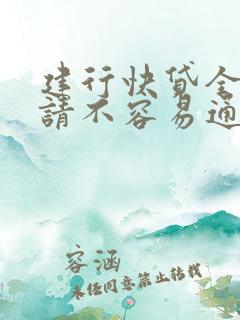 建行快贷全
請不容易通
容涵
未经同意禁止转载